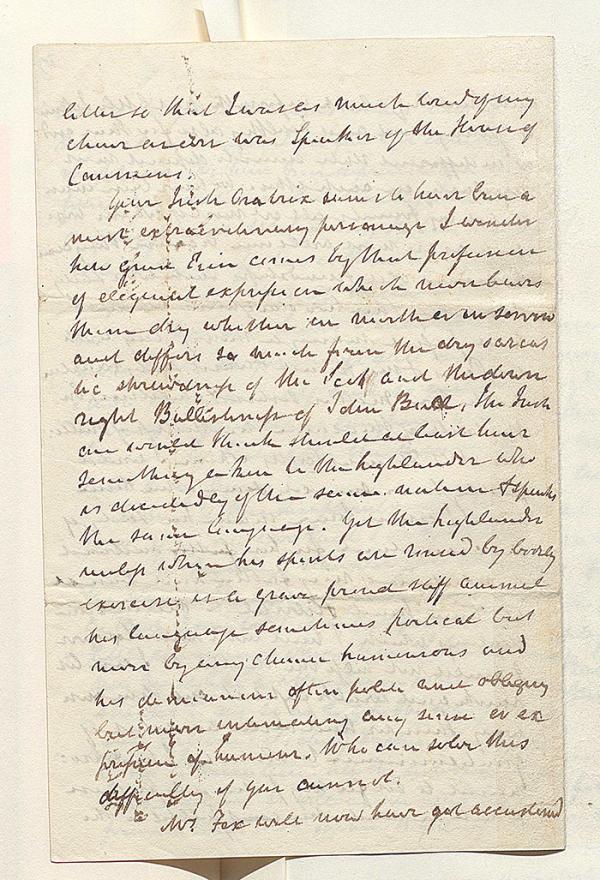 letter so that I was as much tired of my
chair as ever was Speaker of the House of
Commons.
Your Irish Oratrix seems to have been a
most extraordinary personage I wonder
how Green Erin comes by that profusion
of eloquent expression which never leaves
them dry whether in mirth or in sorrow
and differs so much from the dry sarcas
tic shrewdness of the Scot and the down
right Bullishness of John Bull. The Irish
one would think should at least have
something akin to the highlander who
is decidedly of the same nation & speaks
the same language. Yet the highlander
unless when his spirits are roused by bodily
exercise is a grave proud stiff animal
his language sometimes poetical but
never by any chance humorous and
his demeanour often polite and obliging
but never intimating any sense or ex
pression of humour. Who can solve this
difficulty if you cannot.
Mr. Fox will now have got accustomd